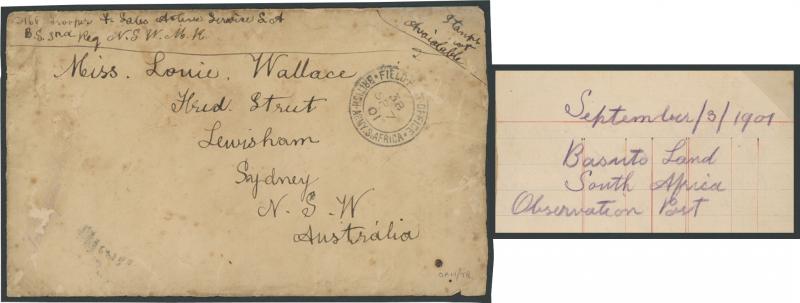 Trooper F. Sales Active Service S.A
B.S. 2nd Reg N.S.W.M.R.
Stamps
not
Available
Miss. Louie. Wallace
Hrid. Street
Lewisham
Sydney
N. S. W
Australia
FIELD POST OFFICE
BRITISH ARMY S. AFRICA
38
SP 7
01
September/3/1901
Basuto Land
South Africa
Observation Post